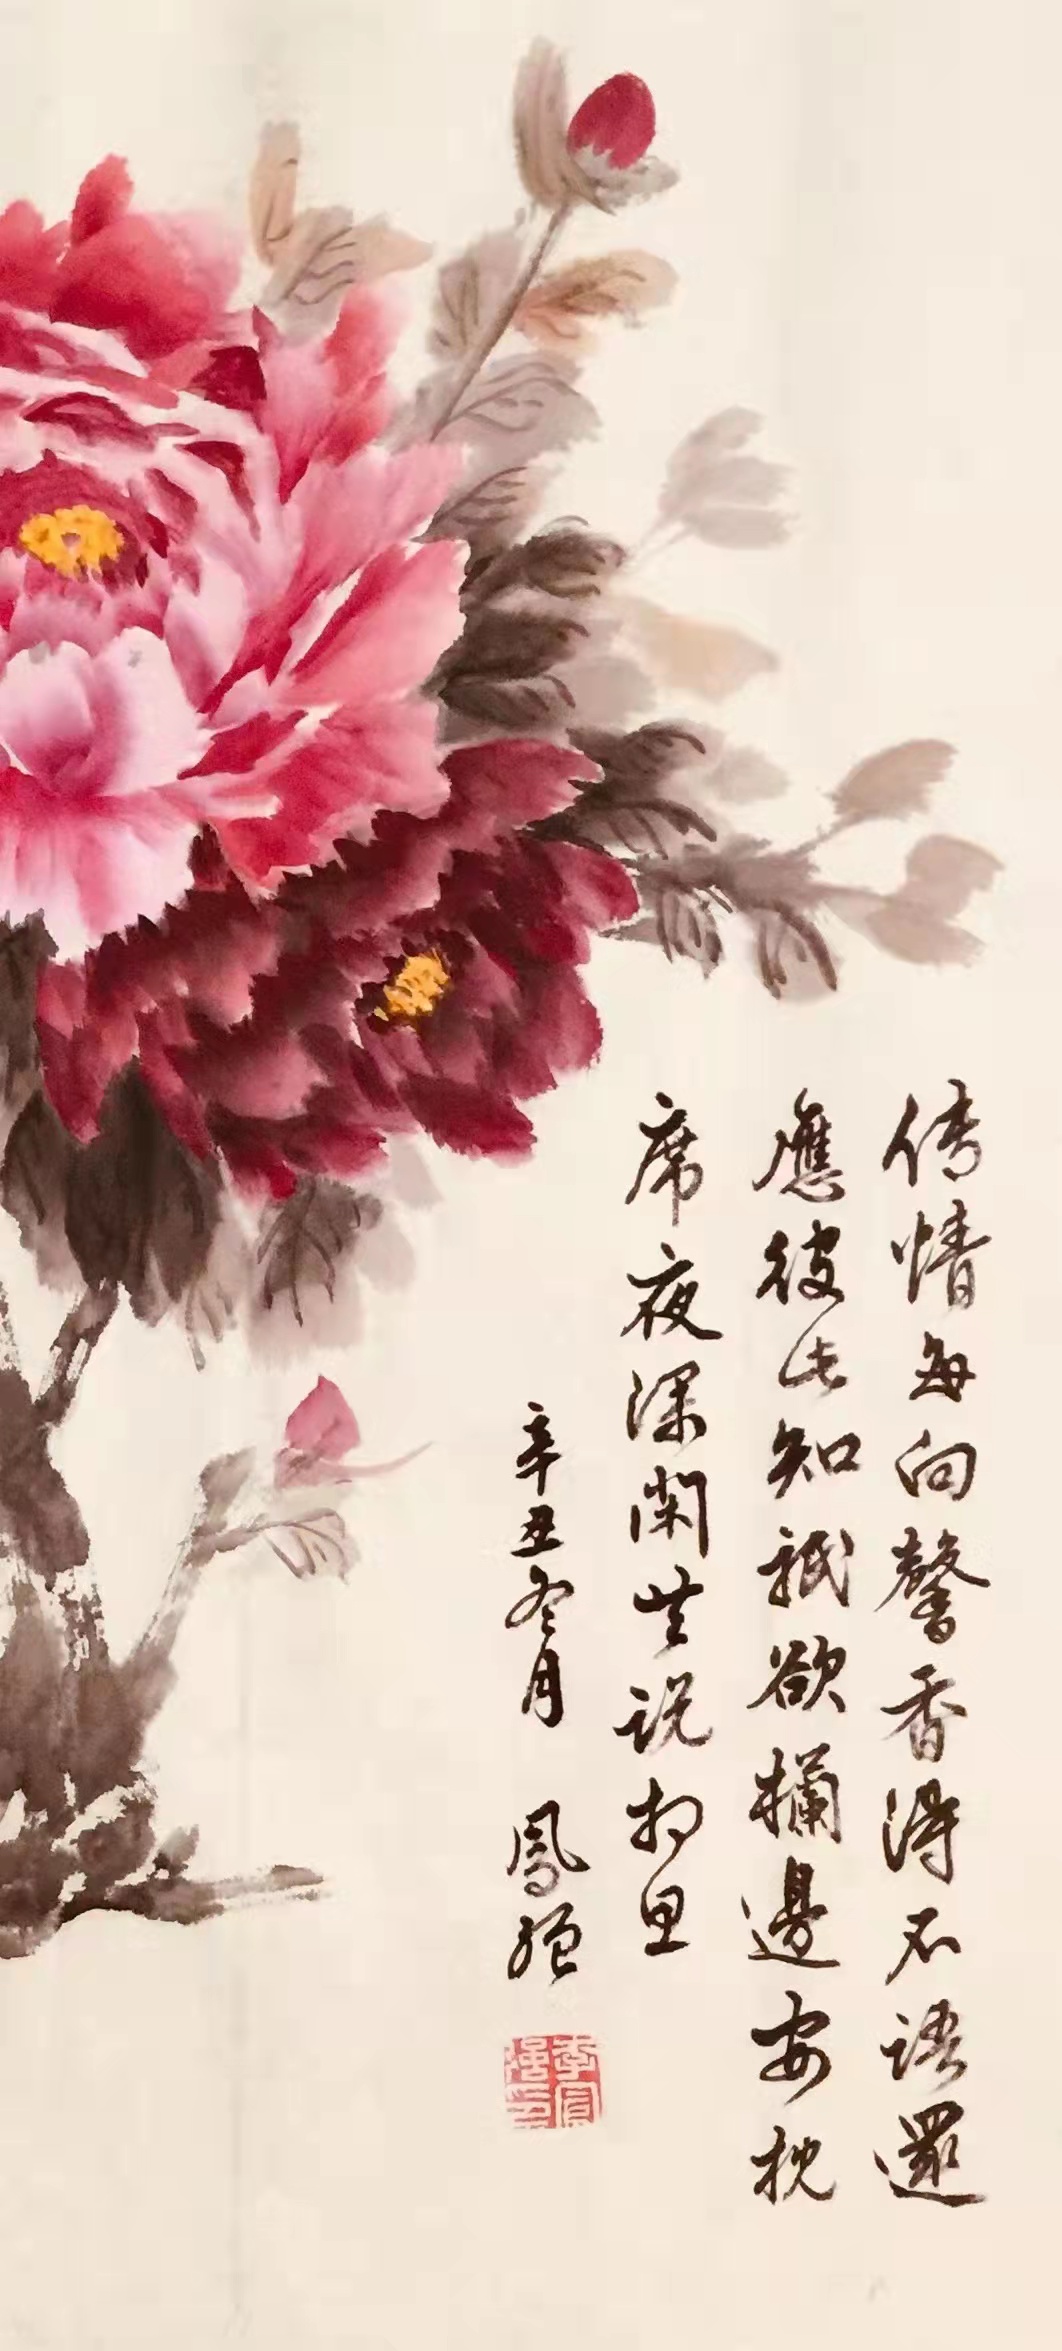 傳情每向馨香得不語還
應彼此知祇欲欄邊安枕
席夜深閑共説相思
辛丑冬月 鳳強